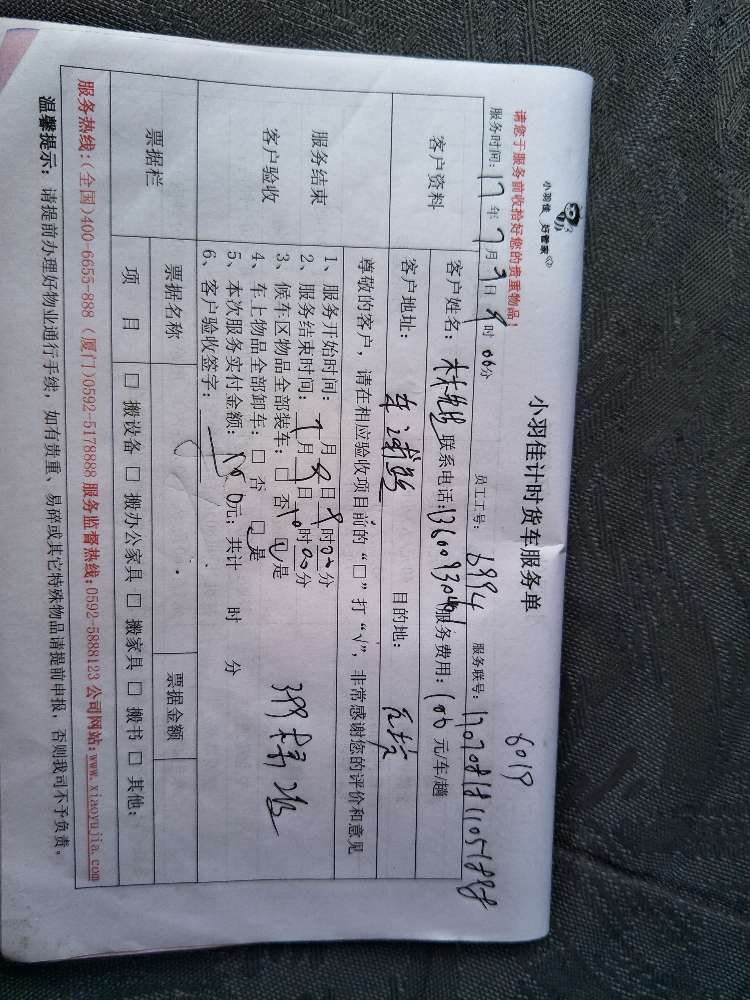 小羽佳 好管家
小羽佳计时货车服务单
6019
请您于服务前收拾好您的贵重物品！
服务时间：17年7月9日9时00分 员工工号：6994 服务联号：
客户资料
客户姓名：林先生 联系电话： 服务费用：100元/车/趟
客户地址： 目的地：
尊敬的客户，请在相应验收项目前的“□”打“√”，非常感谢您的评价和意见
服务结束
客户验收
1、服务开始时间：7月9日9时00分
2、服务结束时间：7月9日10时00分
3、候车区物品全部装车：□否 □是
4、车上物品全部卸车：□否 □是
5、本次服务实付金额：100元；共计 时 分
6、客户验收签字：
票据栏
票据名称 票据金额
项 目 □搬设备 □搬办公家具 □搬家具 □搬书 □其他：
服务热线：(全国)400-6655-888 (厦门)0592-5178888 服务监督热线：0592-5888123 公司网站：www.xiaoyujia.com
温馨提示：请提前办理好物业通行手续，如有贵重、易碎或其它特殊物品请提前申报，否则我司不予负责。